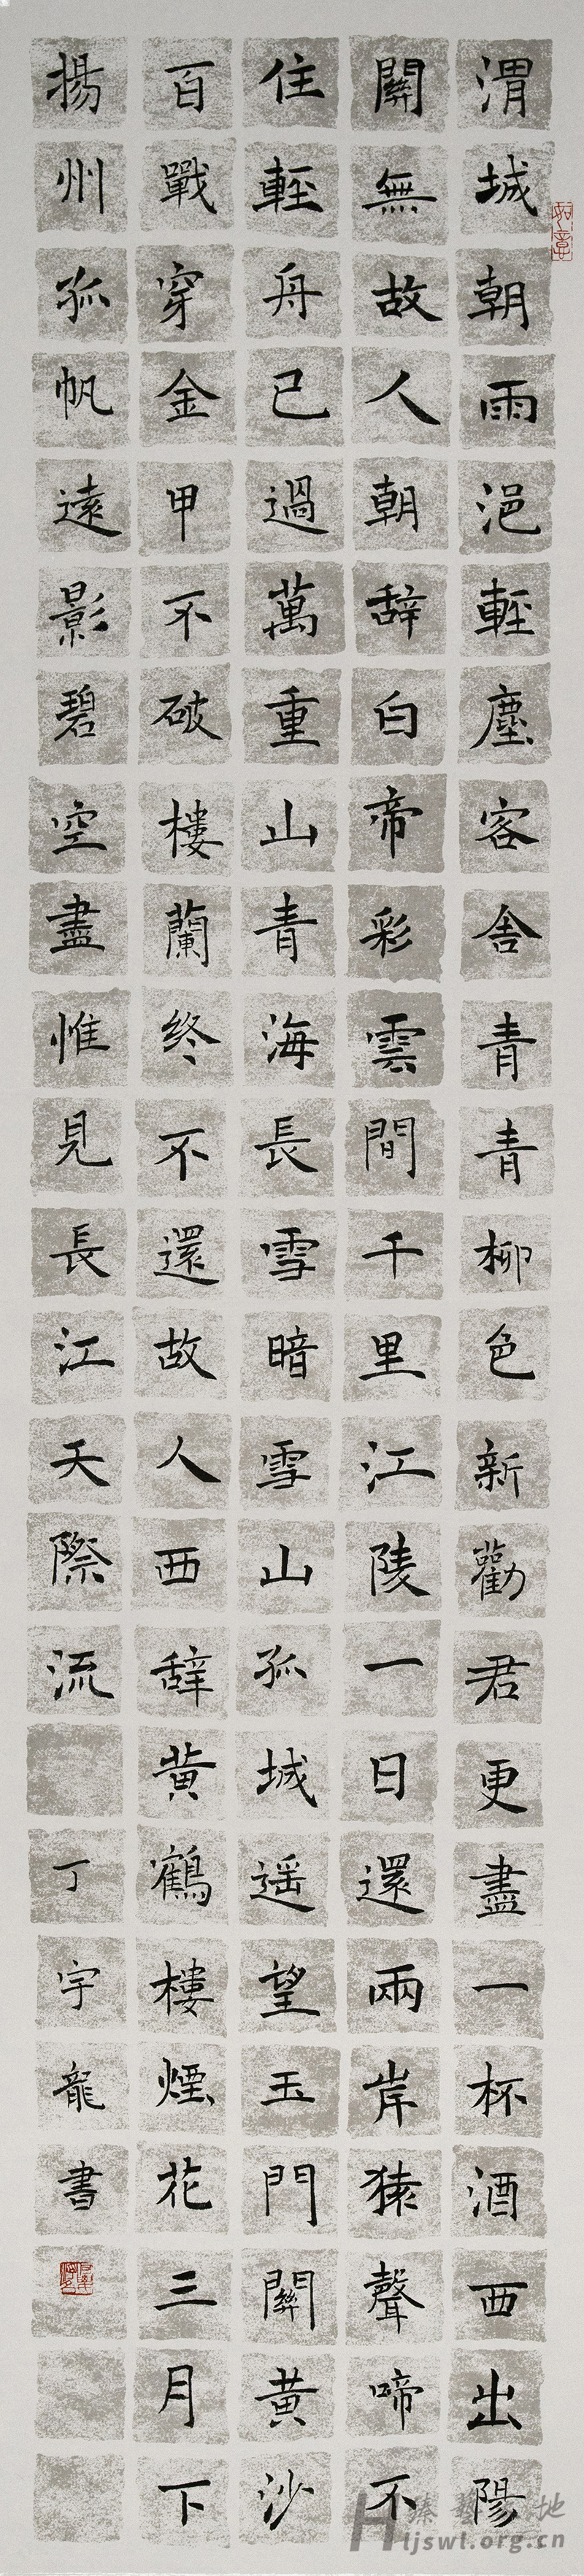 渭城朝雨浥輕塵客舍青青柳色新勸君更盡一杯酒西出陽
關無故人朝辞白帝彩雲間千里江陵一日還兩岸猿聲啼不
住輕舟已過萬重山青海長雪暗雪山孤城遥望玉門關黄沙
百戰穿金甲不破樓蘭終不還故人西辞黄鶴樓煙花三月下
揚州孤帆遠影碧空盡惟見長江天際流
丁宇龍書
Hljswl.org.cn